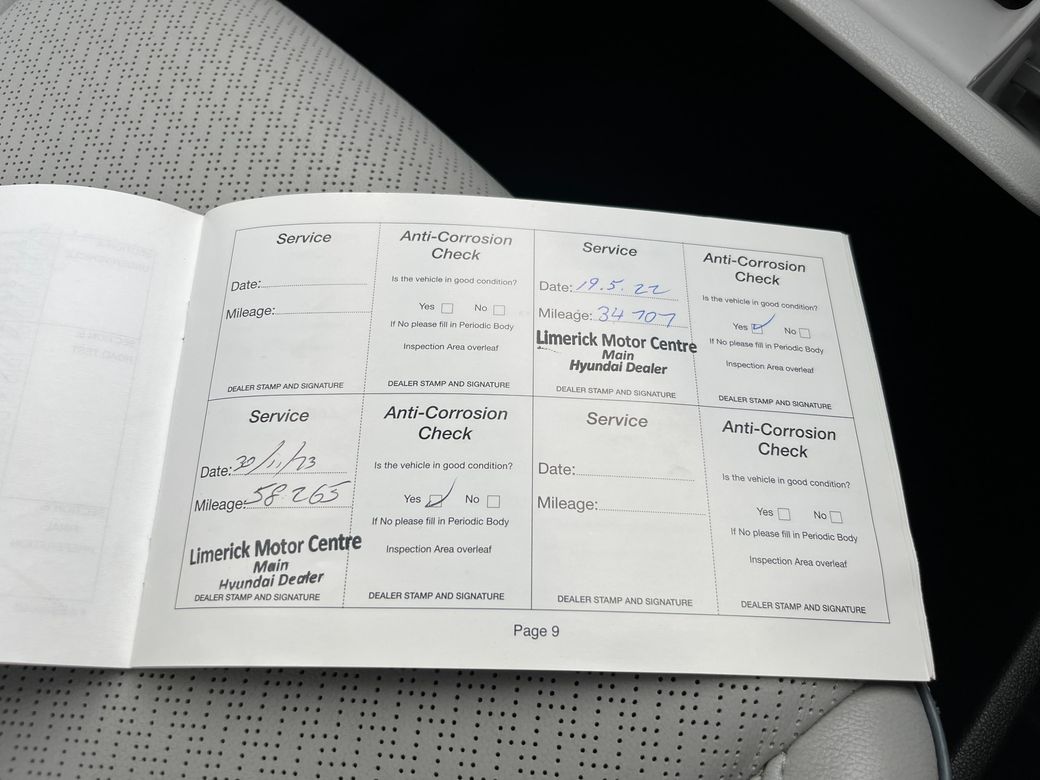 Service
Date:
Mileage:
DEALER STAMP AND SIGNATURE
Anti-Corrosion
Check
Is the vehicle in good condition?
Yes No
If No please fill in Periodic Body
Inspection Area overleaf
DEALER STAMP AND SIGNATURE
Service
Date: 19.5.22
Mileage: 34 707
Limerick Motor Centre
Main
Hyundai Dealer
DEALER STAMP AND SIGNATURE
Anti-Corrosion
Check
Is the vehicle in good condition?
Yes No
If No please fill in Periodic Body
Inspection Area overleaf
DEALER STAMP AND SIGNATURE
Service
Date: 30/11/23
Mileage: 58265
Limerick Motor Centre
Main
Hyundai Dealer
DEALER STAMP AND SIGNATURE
Anti-Corrosion
Check
Is the vehicle in good condition?
Yes No
If No please fill in Periodic Body
Inspection Area overleaf
DEALER STAMP AND SIGNATURE
Service
Date:
Mileage:
DEALER STAMP AND SIGNATURE
Anti-Corrosion
Check
Is the vehicle in good condition?
Yes No
If No please fill in Periodic Body
Inspection Area overleaf
DEALER STAMP AND SIGNATURE
Page 9